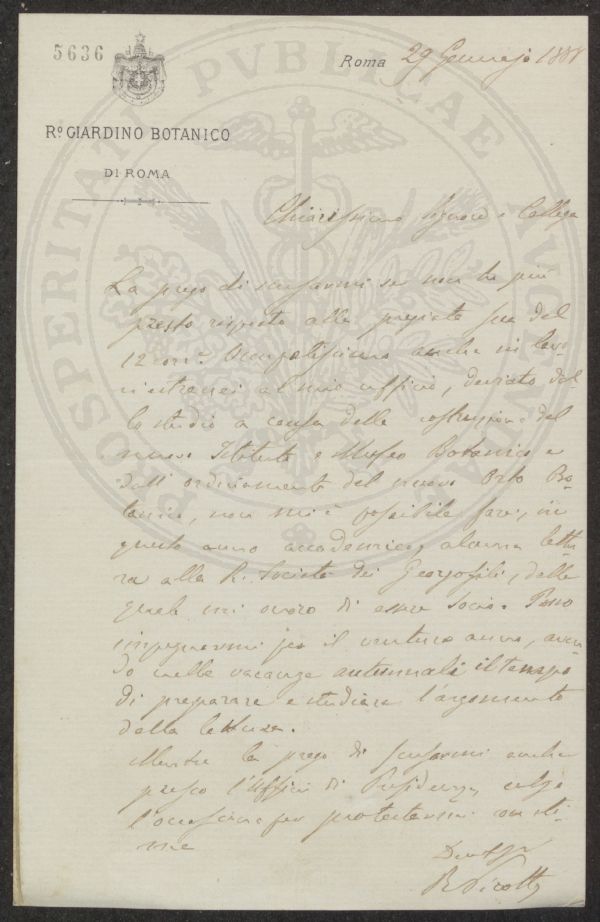 5636
Roma 29 Gennajo 1888
R.º GIARDINO BOTANICO
DI ROMA
Chiarissimo Signore e Collega
La prego di scusarmi se non ho più
presto risposto alla pregiata sua del
12 corr.e Occupatissimo anche in lavo
ri estranei al mio ufficio, deviato dal
lo studio a causa della costruzione del
nuovo Istituto e Museo Botanico e
dell'ordinamento del nuovo Orto Bo-
tanico, non mi è possibile fare, in
questo anno accademico, alcuna lettu
ra alla R. Società dei Georgofili, della
quale mi onoro di essere Socio. Posso
impegnarmi per il venturo anno, aven
do nelle vacanze autunnali il tempo
di preparare e studiare l'argomento
della lettura.
Mentre la prego di scusarmi anche
presso l'Ufficio di Presidenza colgo
l'occasione per protestarmi con sti-
ma
R Pirotta
PROSPERITATI PVBLICAE AVGENDAE